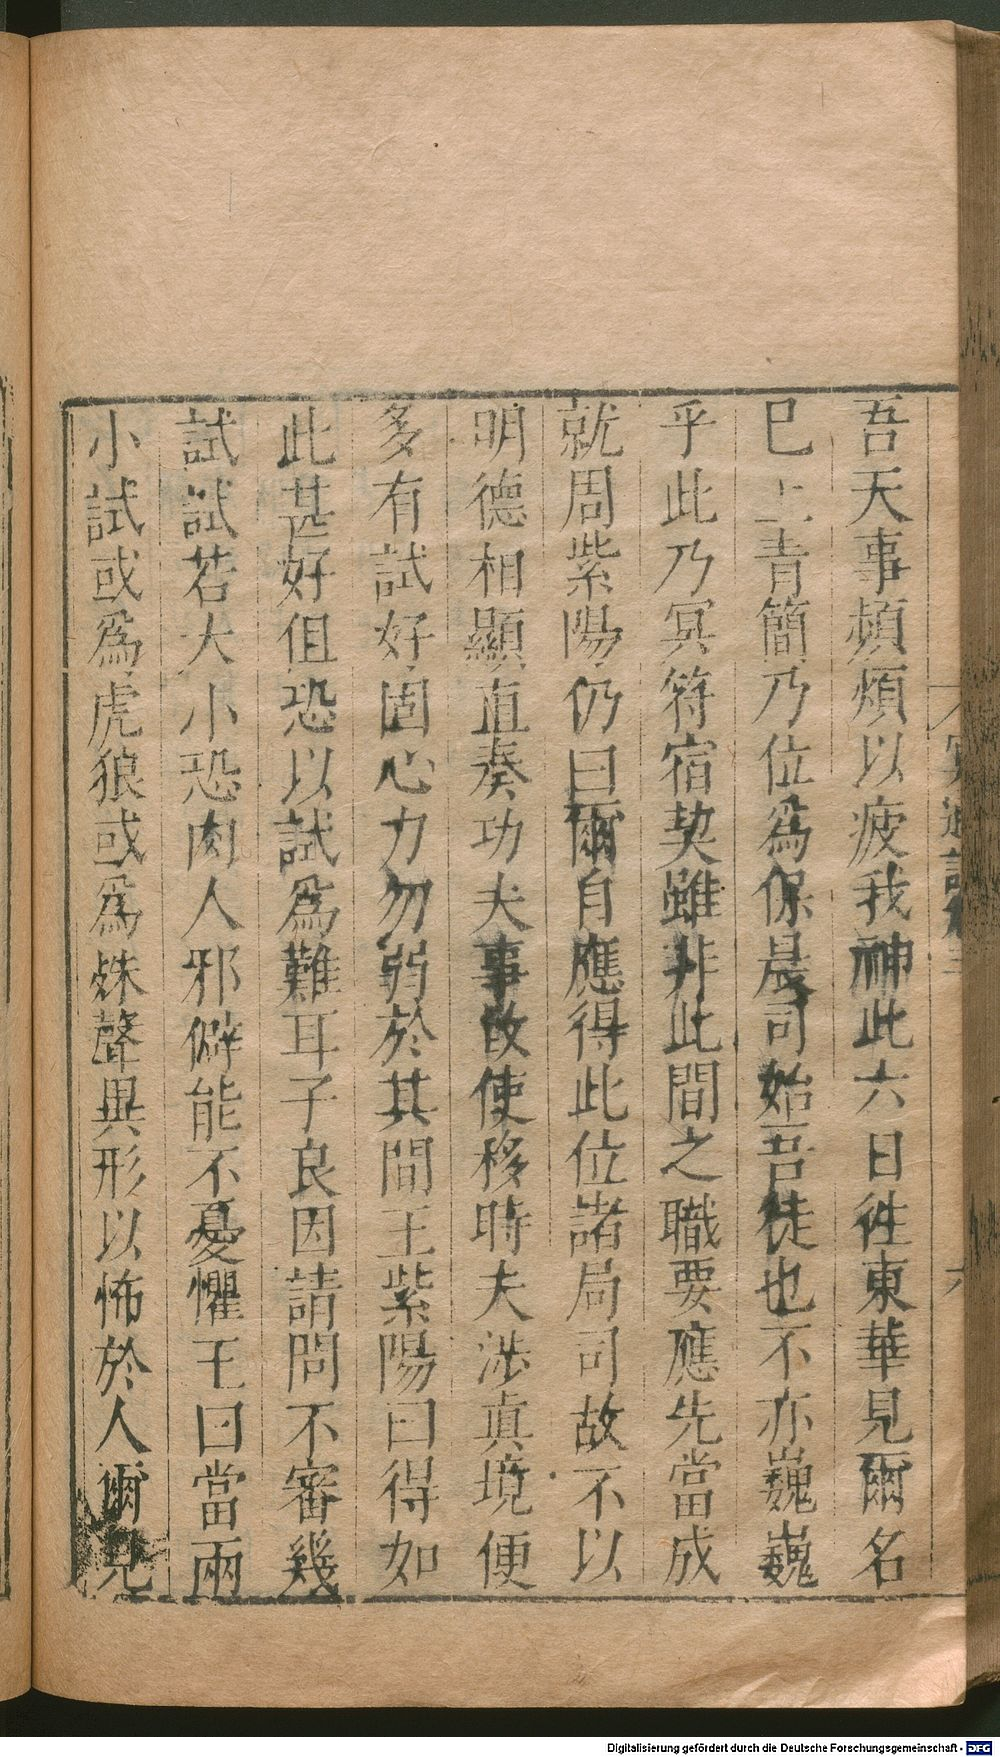 吾天事頻煩以疲我神此六日徃東華見爾名
巳上青簡乃位爲保晨司始吾徒也不亦巍巍
乎此乃冥符宿契雖非此間之職要應先當成
就周紫陽仍曰爾自應得此位諸局司故不以
明德相顯直奏功夫事故使移時夫涉眞境便
多有試好固心力勿弱於其間王紫陽曰得如
此甚好但恐以試爲難耳子良因請問不審幾
試試若大小恐肉人邪僻能不憂懼王曰當兩
小試或爲虎狼或爲殊聲異形以怖於人爾見
六
Digitalisierung gefördert durch die Deutsche Forschungsgemeinschaft - DFG